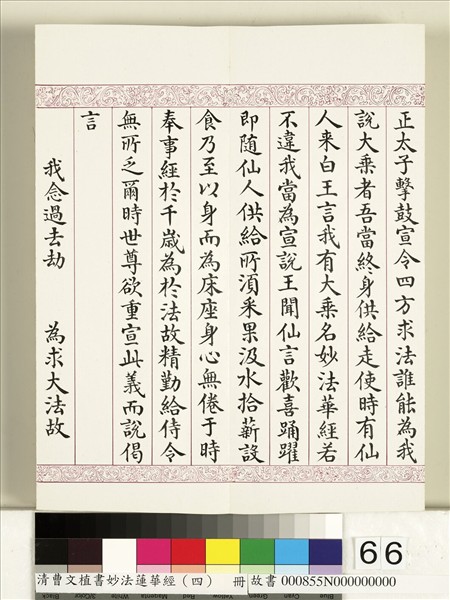 正太子擊鼓宣令四方求法誰能為我
說大乘者吾當終身供給走使時有仙
人来白王言我有大乘名妙法華經若
不違我當為宣說王聞仙言歡喜踊躍
即隨仙人供給所湏采果汲水拾薪設
食乃至以身而為床座身心無倦于時
奉事經於千歲為於法故精勤給侍令
無所乏爾時世尊欲重宣此義而說偈
言
我念過去劫　為求大法故
66
清曹文植書妙法蓮華經（四）　冊 故書 000855N000000000